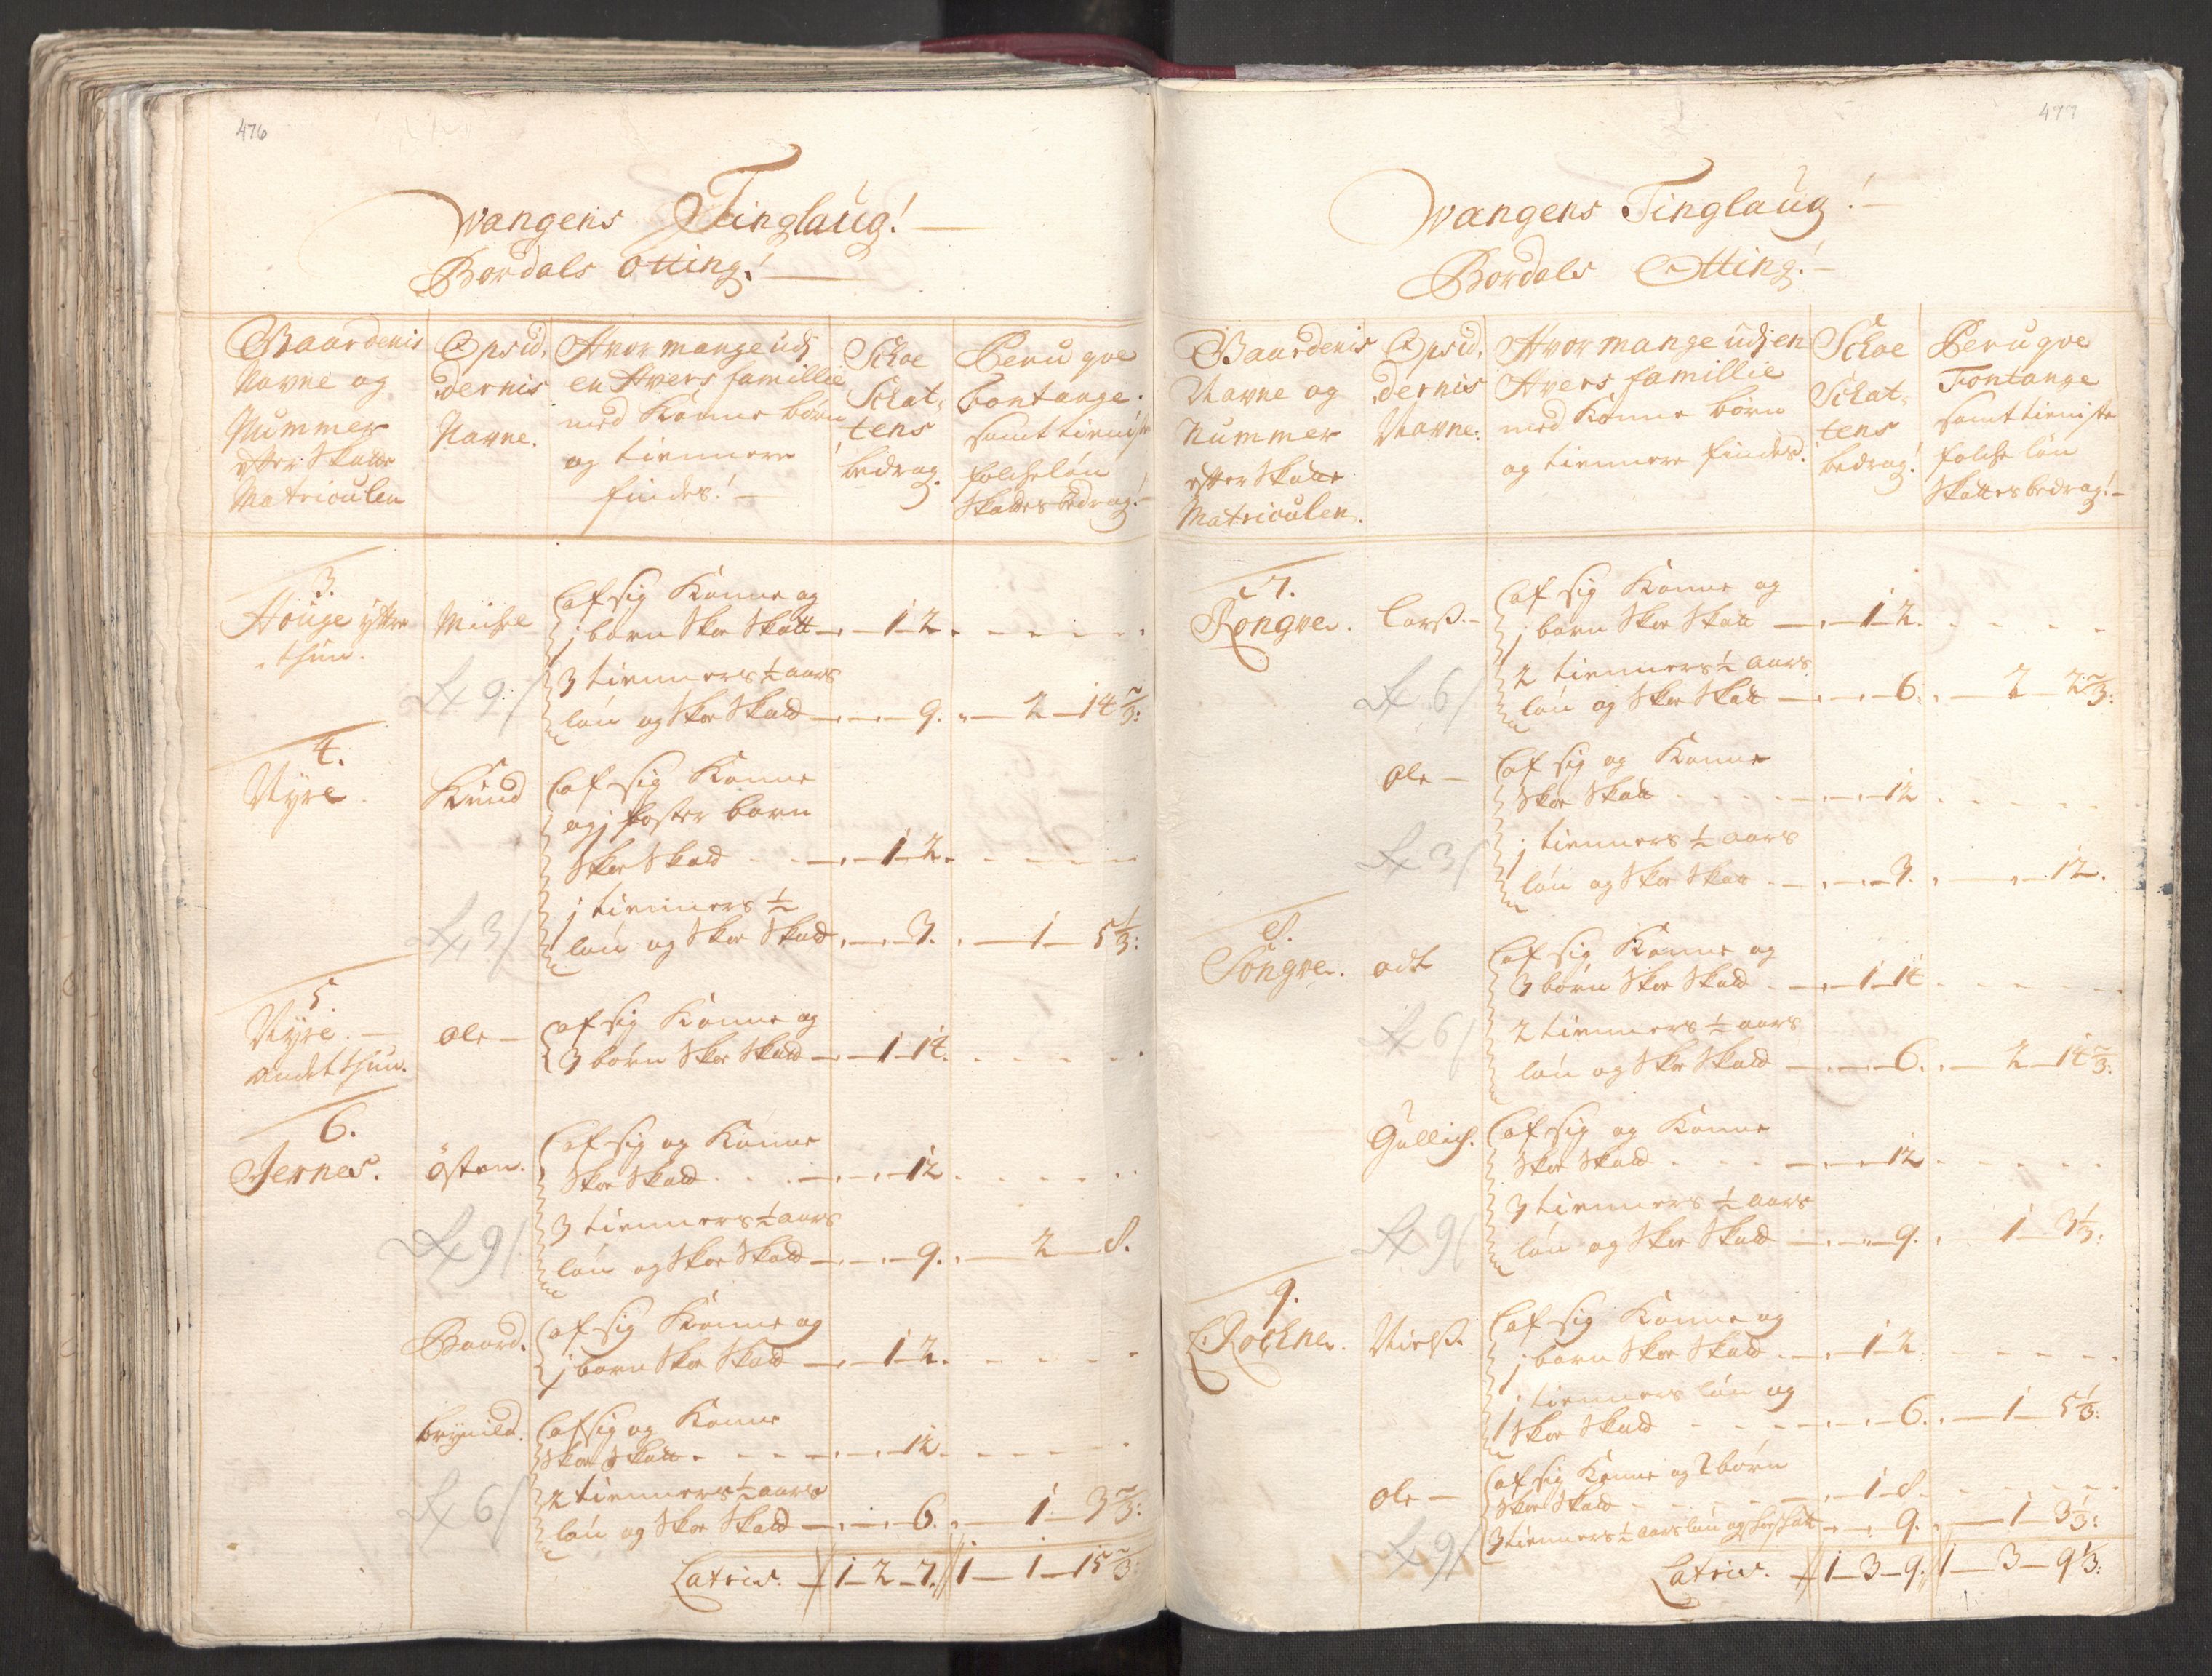 476
Wangens Tinglaug!
Bordals Otting!
Gaardenis
Navne og
Nummer
efter Skatte
Matriculen
Opsid,
dernis
Navne.
Hvor mange udj
en Hvers famillie
med Konne børn
og tiennere
findes!
Schoe
Schat,
tens
bedrag.
Peruqve
fontange.
samt tieniste
folcheløn
Skattes bedrag!
3.
Houge yttre
thun.
Michel
af sig Konne og
j barn Skoe Skatt 1 2
3 tienners ½ aars
løn og Skoe Skatt 9. 2 14⅔:
9
4.
Nyre
Knud
af sig Konne
og j foster barn
Skoe Skatt 1 2.
j tienners ½
løn og Skoe Skatt 3. 1 5⅓:
3
5.
Nyre.
andet thun.
ole
af sig Konne og
3 børn Skoe Skatt 1 14.
6.
Jernes.
østen.
af sig og Konne
Skoe Skatt 12
3 tienners ½ aars
løn og Skoe Skatt 9. 2 8.
9
Baard.
af sig Konne og
j barn Skoe Skatt 1 2.
brynild.
af sig og Konne
Skoe Skatt 12
2 tienners ½ aars
løn og Skoe Skatt 6. 1 3⅔:
6
Latris. 1 2 7. 1 1 15⅔:
477
Wangens Tinglaug!
Bordals Otting!
Gaardenis
Navne og
Nummer
efter Skatte
Matriculen.
Opsid,
dernis
Navne:
Hvor mange udj en
Hvers famillie
med Konne børn
og tiennere findes.
Schoe
Schat,
tens
bedrag!
Peruqve
Fontange
samt tieniste
folche løn
Skattes bedrag!
7.
Rongve.
Larss.
af sig Konne og
j barn Skoe Skatt 1 2.
2 tienners ½ aars
løn og Skoe Skatt 6. 2 2⅔:
6
ole
af sig og Konne
Skoe Skatt 12
j tienners ½ aars
løn og Skoe Skatt 3. 12.
3
8.
Songve.
odt
af sig Konne og
3 børn Skoe Skatt 1 14
2 tienners ½ aars
løn og Skoe Skatt 6. 2 14⅔:
6
Gullich.
af sig og Konne
Skoe Skatt 12
3 tienners ½ aars
løn og Skoe Skatt 9. 1 3⅓:
9
9.
Rochne.
Nielss.
af sig Konne og
j barn Skoe Skatt 1 2.
j tienners løn og
Skoe Skatt 6. 1 5⅓:
ole
af sig Konne og 2 børn
Skoe Skatt 1 8.
3 tienners ½ aars løn og skoe skatt 9. 1 3⅓:
9
Latris. 1 3 9. 1 3 9⅓: